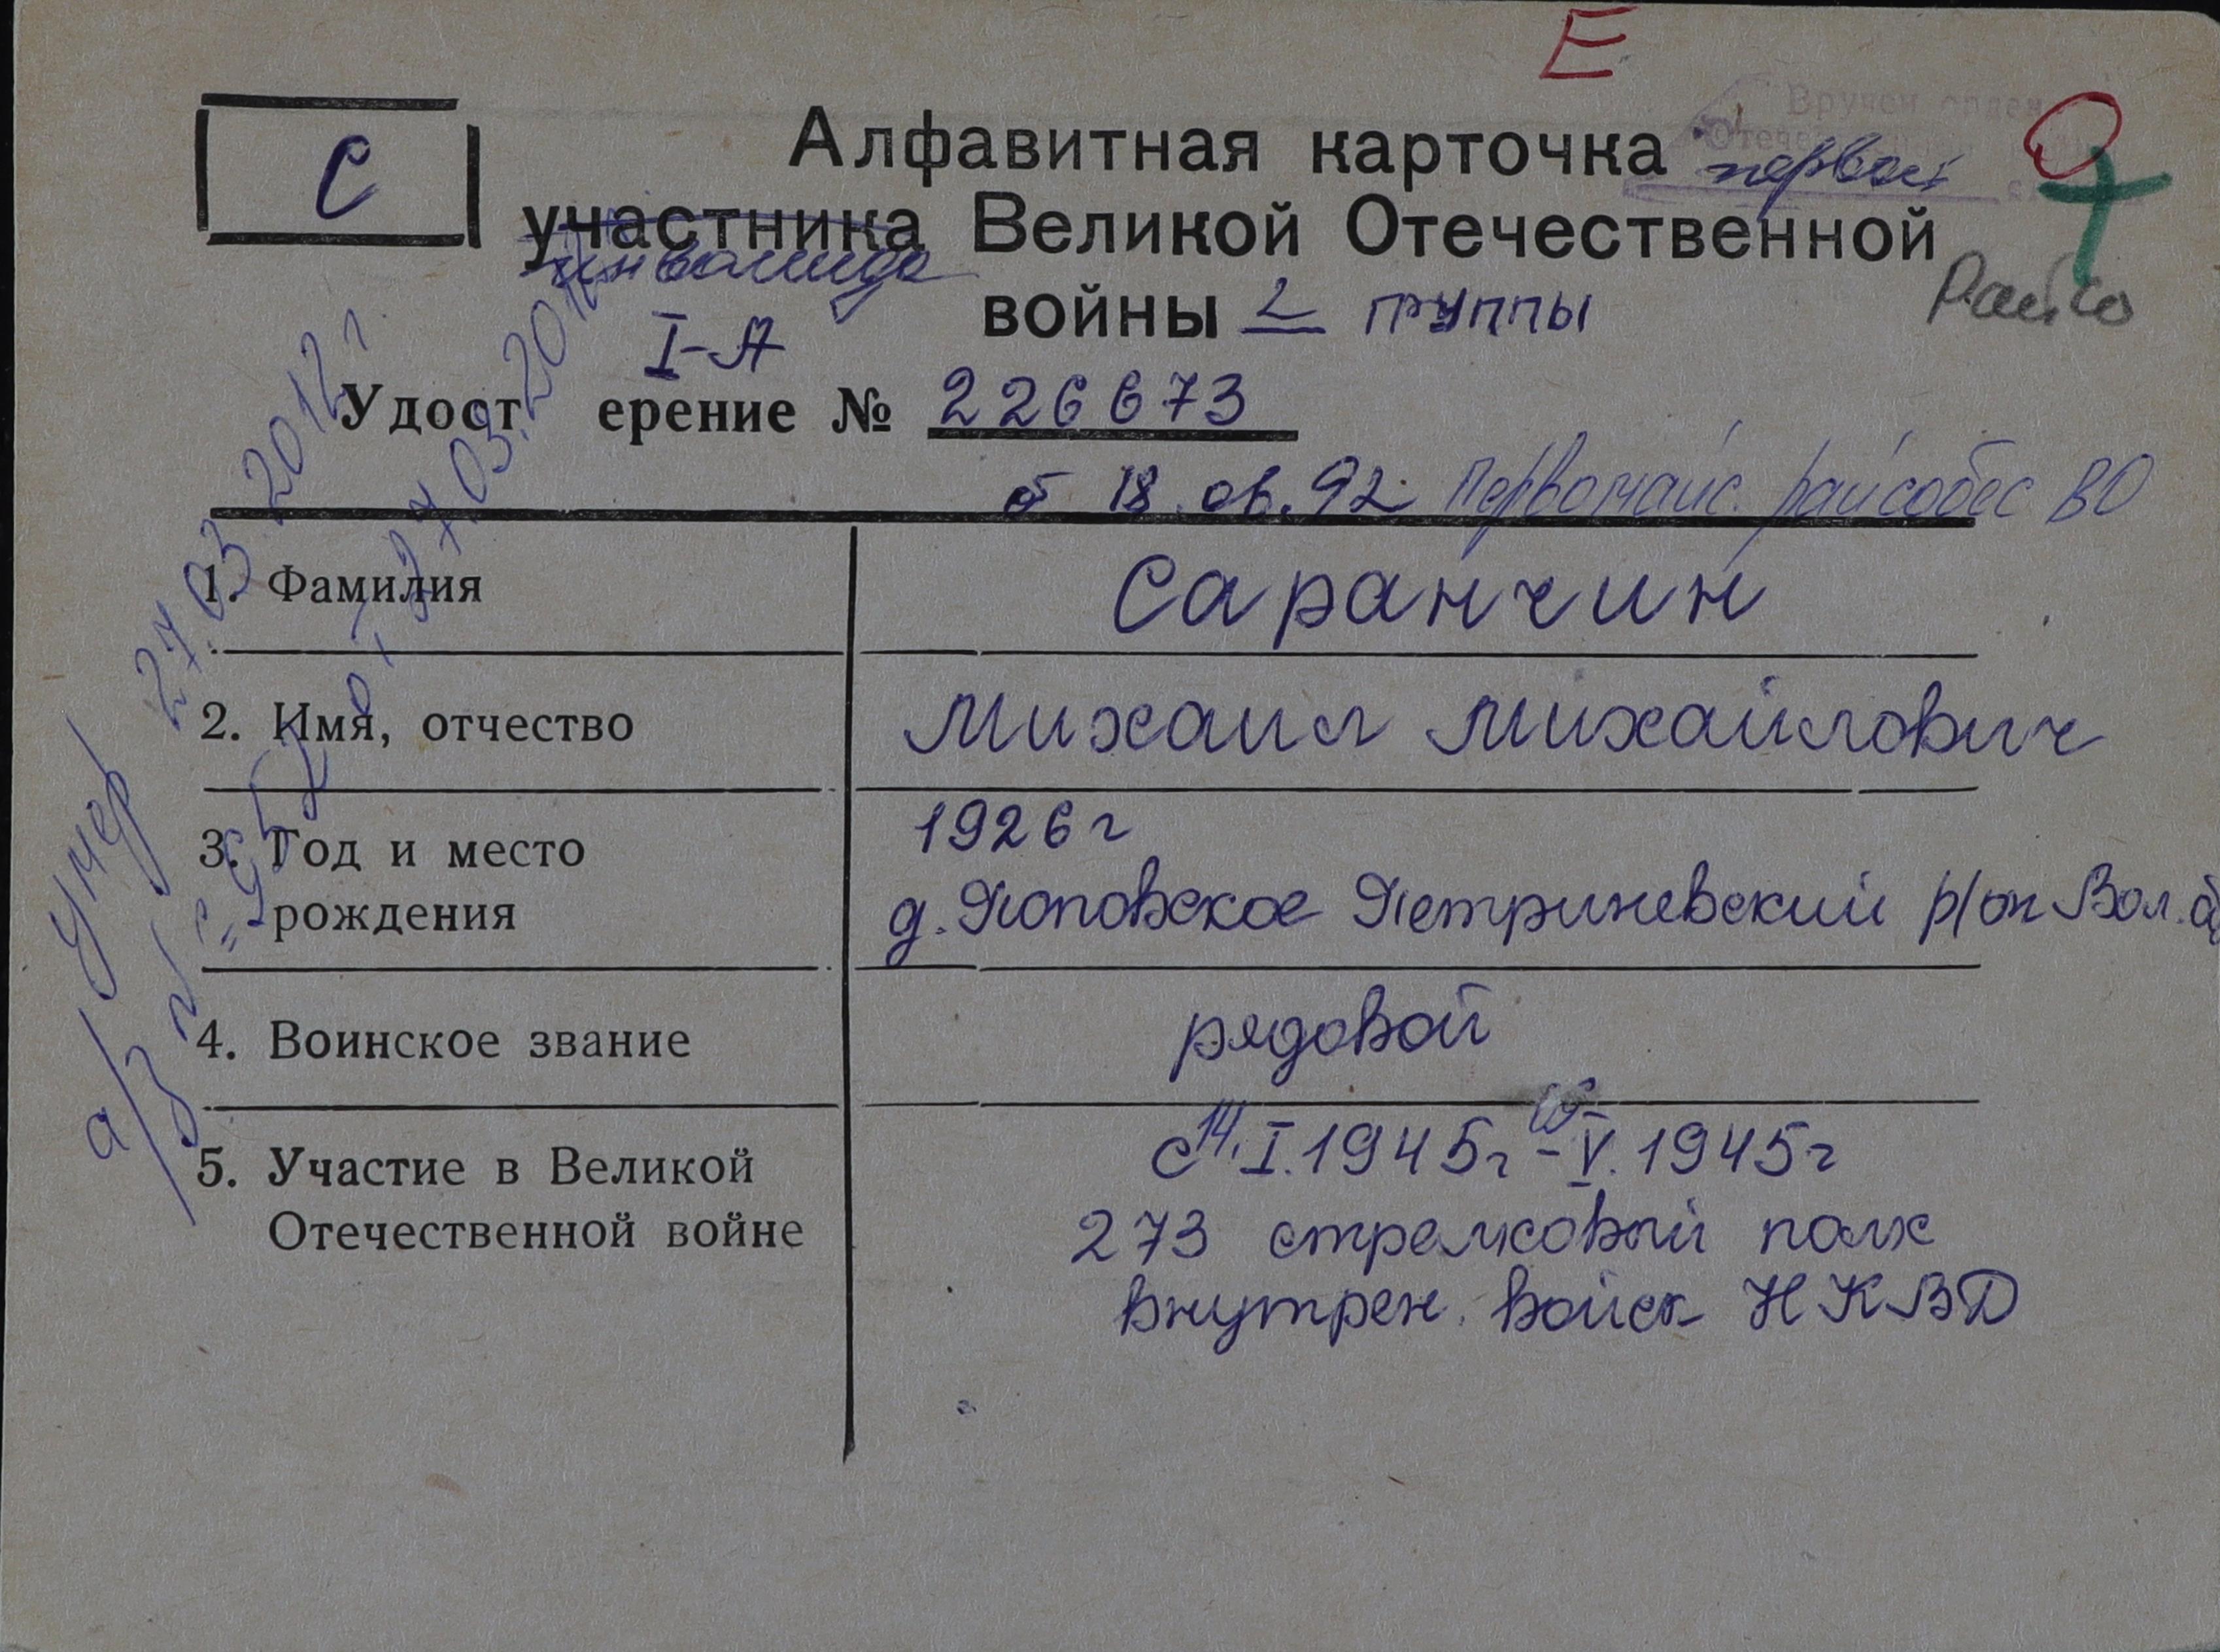 Е
Вручен орден
Отечес
С
Алфавитная карточка первой
участника Великой Отечественной
инвалида
войны 2 группы
I-А
Удост ерение № 226673
от 18.06.92 Первомайс. райсобес ВО
1. Фамилия Саранчин
2. Имя, отчество Михаил Михайлович
3. Год и место рождения 1926 г
д. Поповское Петриневский р/он Вол. об
4. Воинское звание рядовой
5. Участие в Великой Отечественной войне с 14.I.1945г - V.1945г
273 стрелковый полк
внутрен. войск НКВД
умер 27.03.2012 г
а/з № 952 от 27.03.201